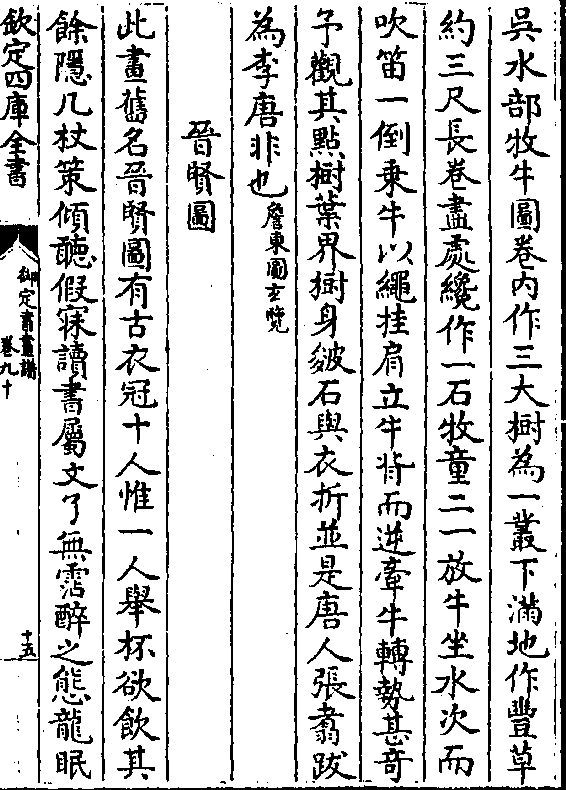 吳水部牧牛圖卷内作三大樹為一叢下滿地作豐草
約三尺長卷盡處纔作一石牧童二一放牛坐水次而
吹笛一倒乗牛以繩挂肩立牛背而逆牽牛轉勢甚竒
予觀其㸃樹葉界樹身皴石與衣折並是唐人張翥跋
為李唐非也詹東圖玄覽
晉賢圖
此畫舊名晉賢圖有古衣冠十人惟一人舉杯欲飲其
餘隱几杖策傾聽假寐讀書屬文了無霑醉之態龍眠
欽定四庫全書
御定書畫譜
卷九十
十五